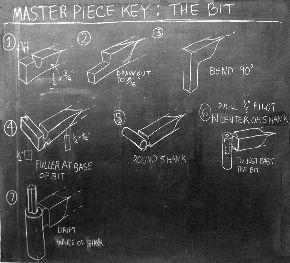 MASTER PIECE KEY: THE BIT
1
2
DRAW OUT
3
BEND 90°
4
FULLER AT BASE
OF BIT
5
ROUND SHANK
6
DRILL PILOT
IN CENTER OF SHANK
TO JUST PAST
THE BIT
7
DRIFT
INSIDE OF SHANK